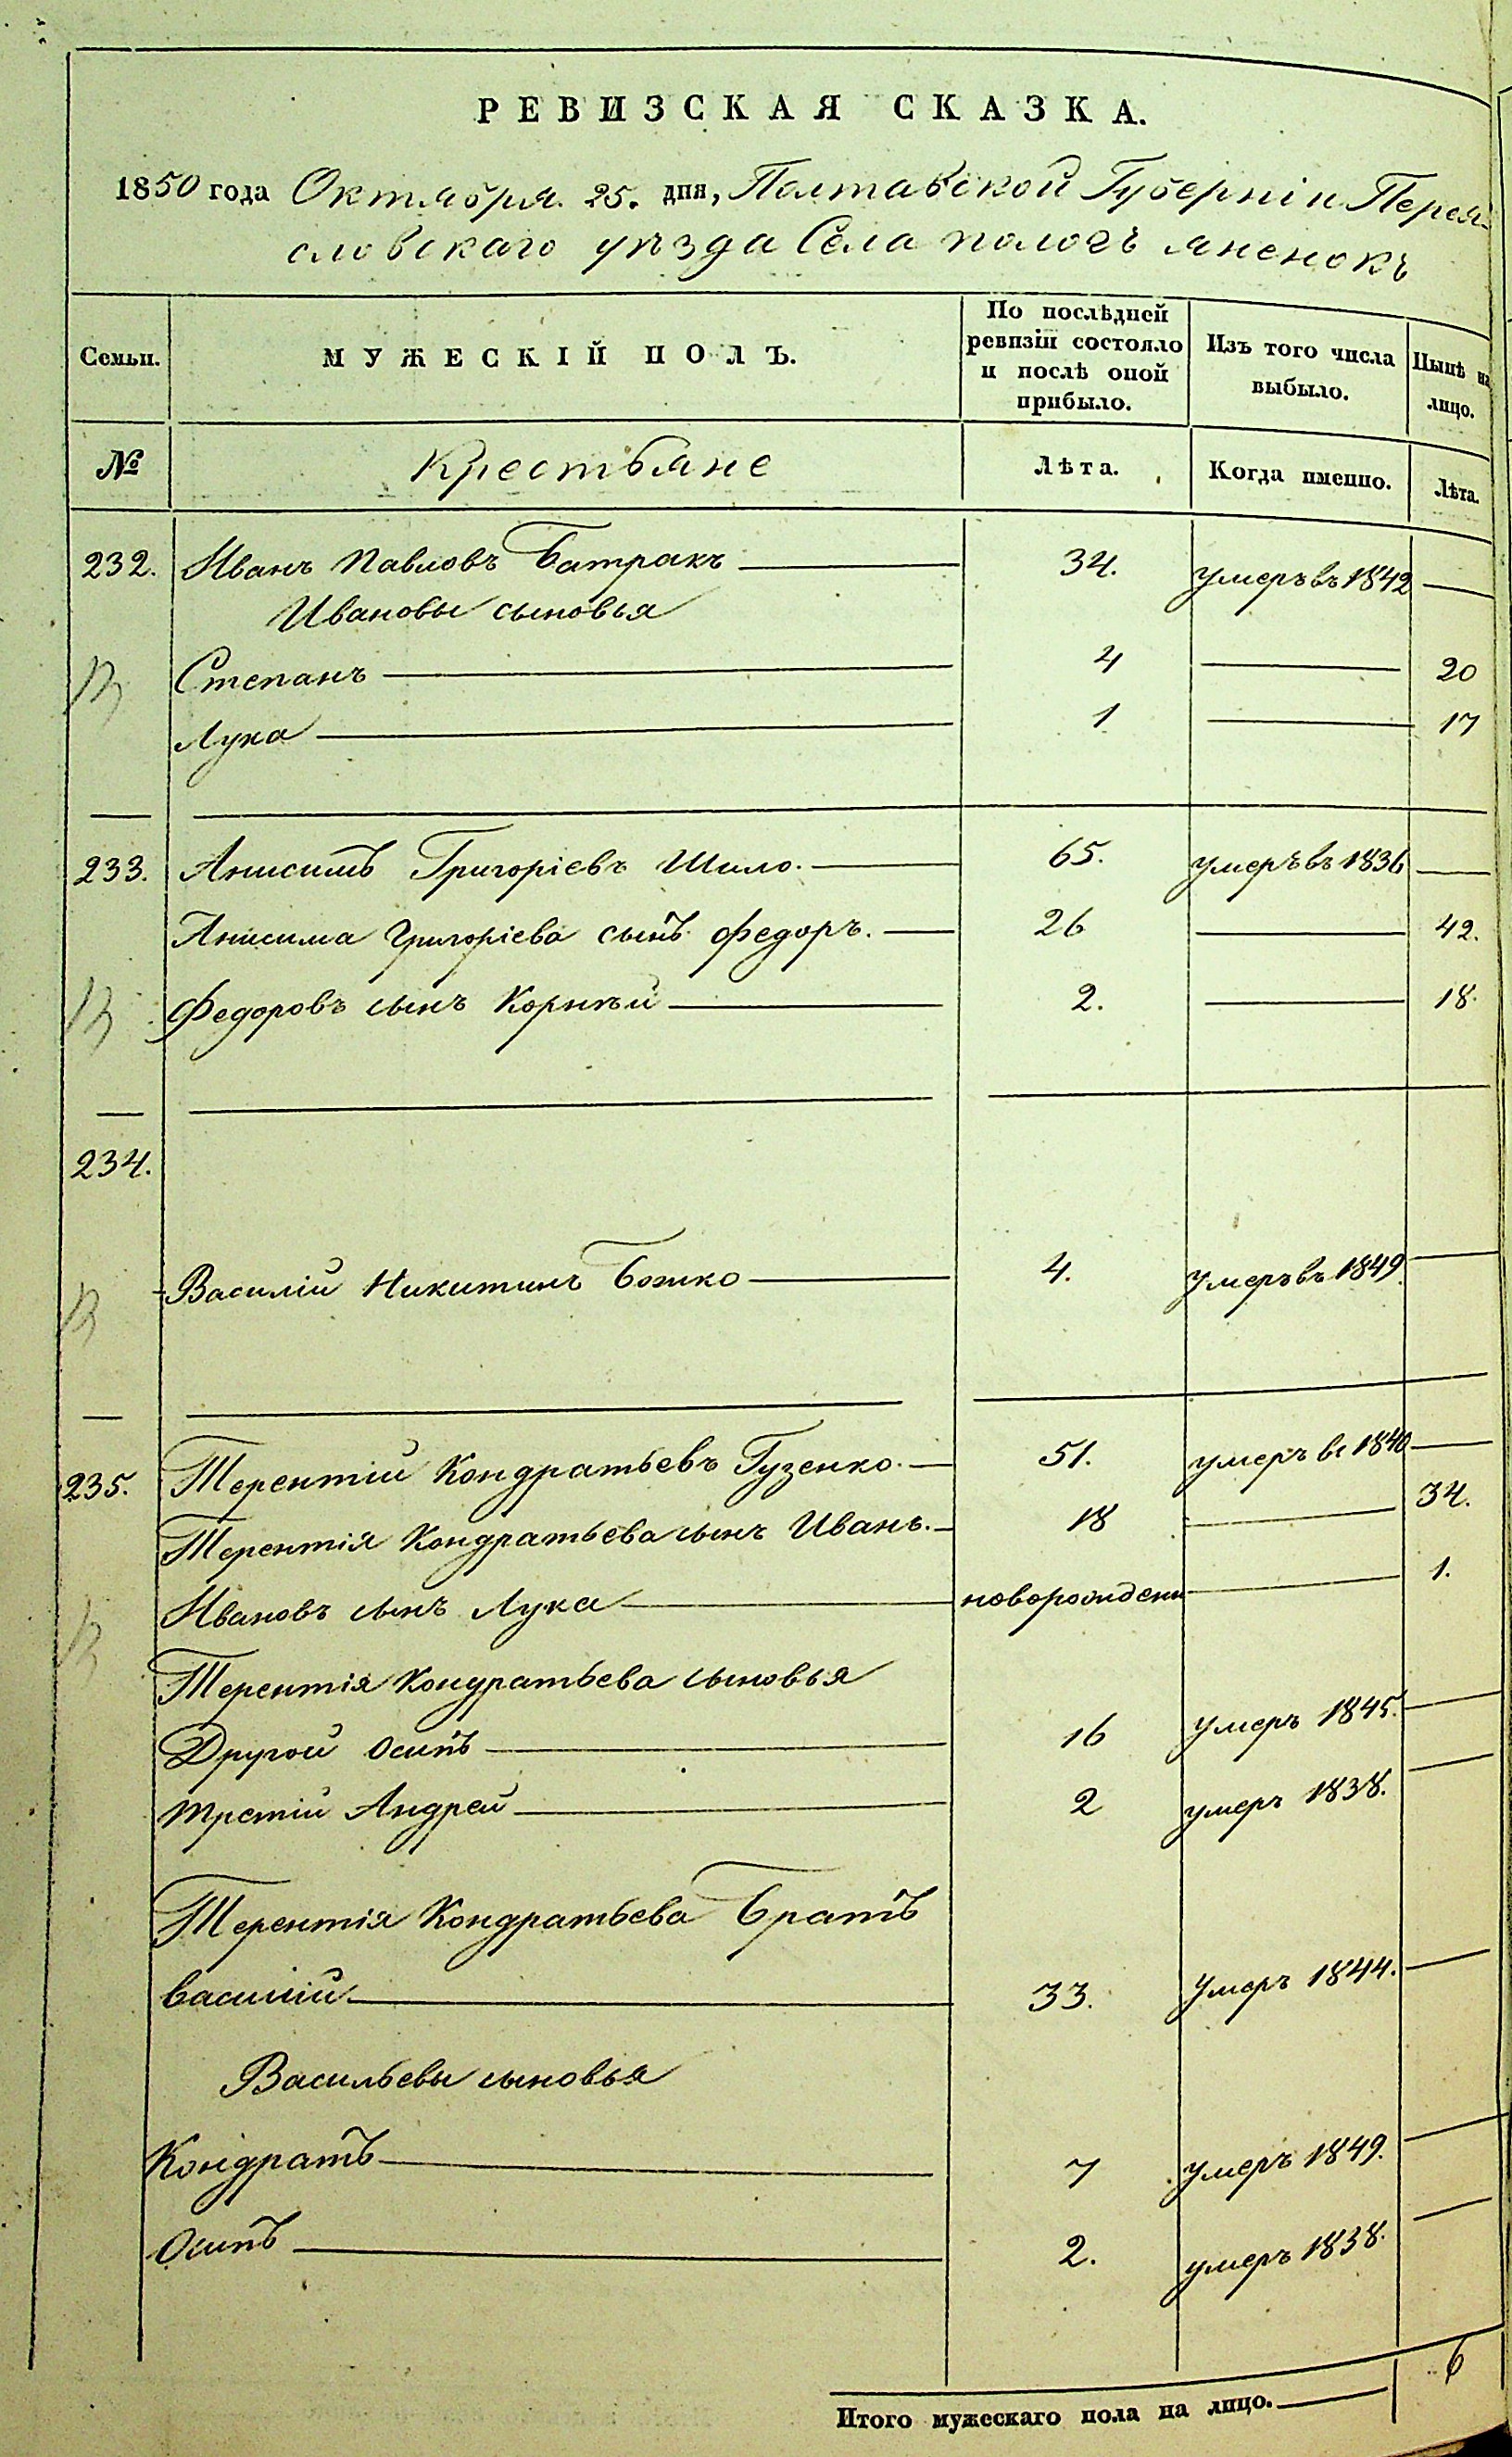 РЕВИЗСКАЯ СКАЗКА.
1850 года Октября 25. дня, Полтавской Губерніи Перея-
словскаго уѣзда Села пологъ яненокъ
Семьи. МУЖЕСКІЙ ПОЛЪ. По послѣдней ревизіи состояло и послѣ оной прибыло. Изъ того числа выбыло. Нынѣ на лицо.
№ Крестьяне Лѣта. Когда именно. Лѣта.
232. Иванъ Павловъ Батракъ 34. умеръ въ 1842
Ивановы сыновья
Степанъ 4 20
Лука 1 17
233. Анисимъ Григоріевъ Шило. 65. умеръ въ 1836
Анисима Григоріева сынъ Федоръ. 26 42.
Федоровъ сынъ Корнѣй 2. 18.
234.
Василій Никитинъ Божко 4. умеръ въ 1849.
235. Терентій Кондратьевъ Гузенко. 51. умеръ въ 1840
Терентія Кондратьева сынъ Иванъ. 18 34.
Ивановъ сынъ Лука новорожденъ 1.
Терентія Кондратьева сыновья
Другой Осипъ 16 умеръ 1845.
третій Андрей 2 умеръ 1838.
Терентія Кондратьева Братъ
василій 33. умеръ 1844.
Васильевы сыновья
Кондратъ 7 умеръ 1849.
Осипъ 2. умеръ 1838.
Итого мужескаго пола на лицо. 6